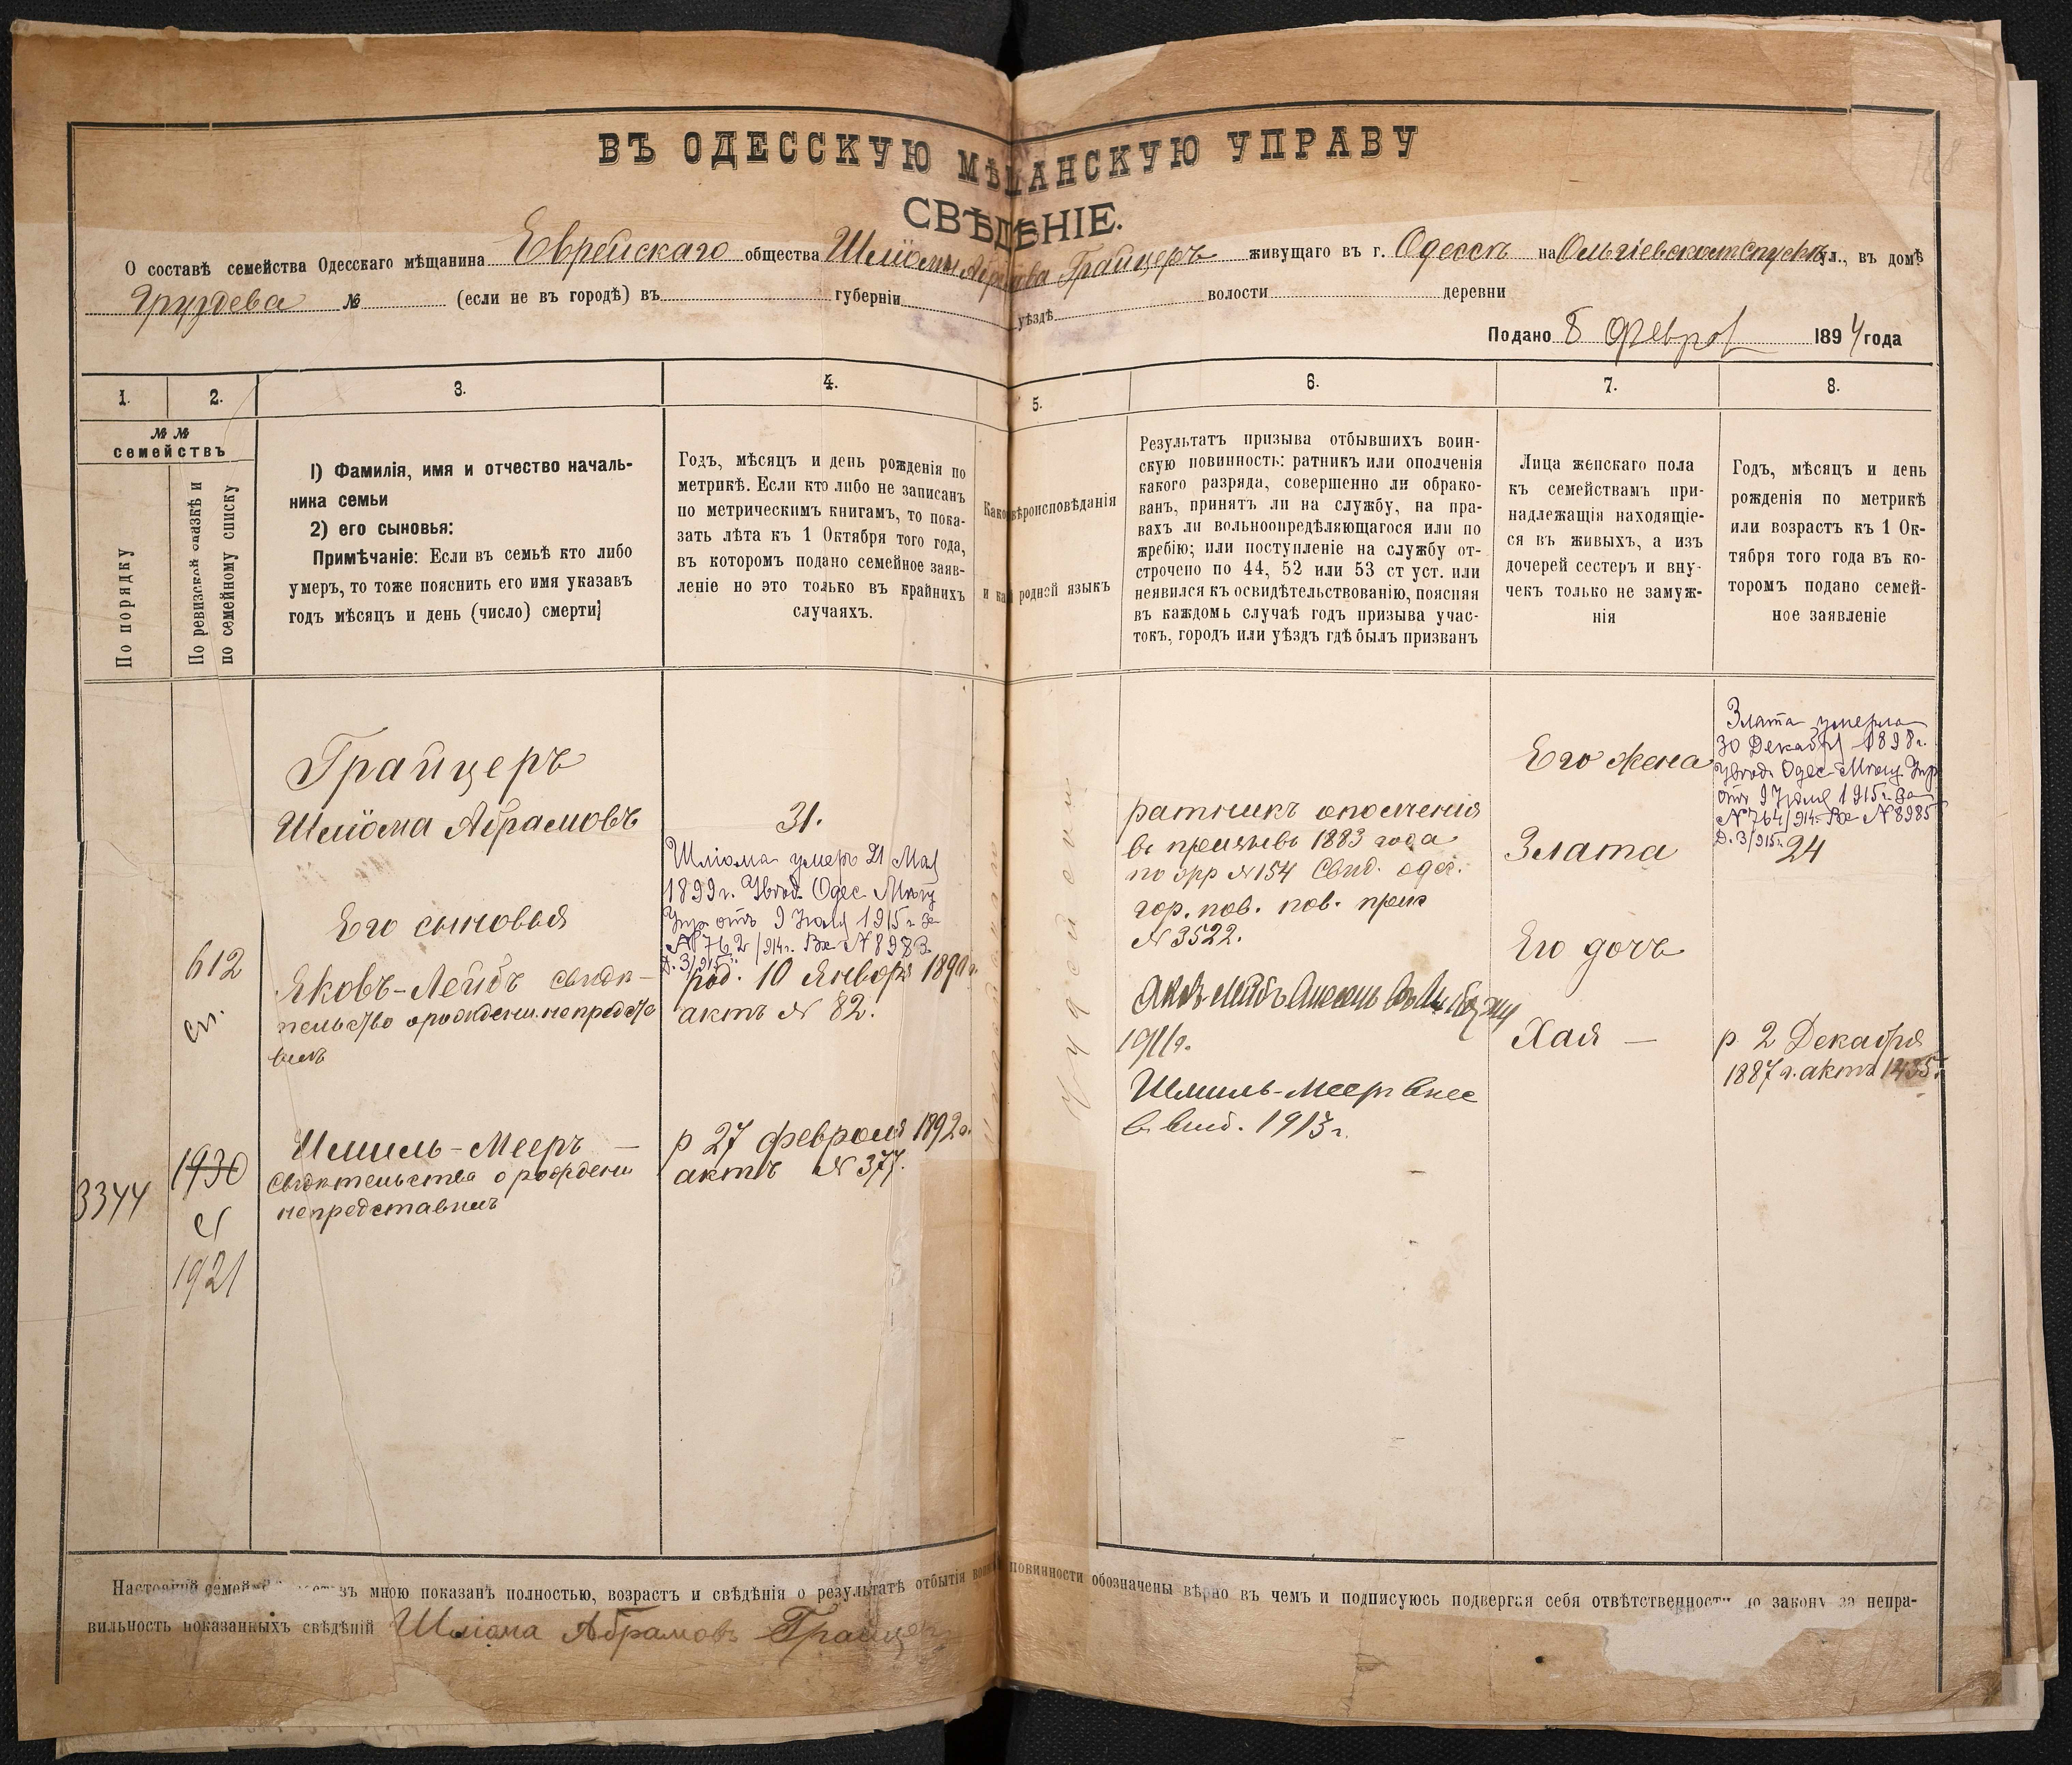 ВЪ ОДЕССКУЮ МѢЩАНСКУЮ УПРАВУ
СВѢДѢНІЕ.
О составѣ семейства Одесскаго мѣщанина Еврейскаго общества Шліомы Абрамова Грайцеръ живущаго въ г. Одессѣ на Ольгіевскомъ Спускѣ ул., въ домѣ
Груздева № (если не въ городѣ) въ губерніи уѣздѣ волости деревни
Подано 8 Феврал 1894 года
1.
2.
3.
4.
5.
6.
7.
8.
№ № семействъ
По порядку
По ревизской сказкѣ и
по семейному списку
1) Фамилія, имя и отчество началь-
ника семьи
2) его сыновья:
Примѣчаніе: Если въ семьѣ кто либо
умеръ, то тоже пояснить его имя указавъ
годъ мѣсяцъ и день (число) смерти]
Годъ, мѣсяцъ и день рожденія по
метрикѣ. Если кто либо не записанъ
по метрическимъ книгамъ, то пока-
зать лѣта къ 1 Октября того года,
въ которомъ подано семейное заяв-
леніе но это только въ крайнихъ
случаяхъ.
Како вѣроисповѣданія
и ка родной языкъ
Результатъ призыва отбывшихъ воин-
скую повинность: ратникъ или ополченія
какого разряда, совершенно ли обрако-
ванъ, принятъ ли на службу, на пра-
вахъ ли вольноопредѣляющагося или по
жребію; или поступленіе на службу от-
строчено по 44, 52 или 53 ст уст. или
неявился къ освидѣтельствованію, поясняя
въ каждомъ случаѣ годъ призыва учас-
токъ, городъ или уѣздъ гдѣ былъ призванъ
Лица женскаго пола
къ семействамъ при-
надлежащія находящіе-
ся въ живыхъ, а изъ
дочерей сестеръ и вну-
чекъ только не замуж-
нія
Годъ, мѣсяцъ и день
рожденія по метрикѣ
или возрастъ къ 1 Ок-
тября того года въ ко-
торомъ подано семей-
ное заявленіе
Грайцеръ
Шліома Абрамовъ
Его сыновья
612
сп.
Яковъ-Лейбъ свидѣ-
тельство о рожденіи непредста
вилъ
3344
1930
1921
Шмиль-Мееръ —
Свидѣтельства о рожденіи
непредставилъ
31.
Шліома умеръ 21 Мая
1899г. Увѣд. Одес. Мѣщ
Упр отъ 9 Іюля 1915 г за
№ 762/914г. Вх № 8983
Д. 3/915г.
род. 10 Января 1890 г.
актъ № 82.
р 27 февраля 1892г.
актъ № 377.
Іудейскій
ратникъ ополченія
въ призывъ 1883 года
по № 154 Свид. одес.
гор. пов. пов. прис
№ 3522.
Яковъ Лейбъ внесенъ
1911г.
Шмиль-Меер внес
в 1913г.
Его жена
Злата
Его дочь
Хая —
Злата умерла
30 Декабря 1898г.
Увѣд. Одес Мѣщ. Упр
отъ 9 Іюля 1915г. за
№ 764/914г. Вх № 8985
Д. 3/915г.
24
р 2 Декабря
1887 г. актъ 1435.
188
Настоящій семейный составъ мною показанъ полностью, возрастъ и свѣдѣнія о результатѣ отбытія воинской повинности обозначены вѣрно въ чемъ и подписуюсь подвергая себя отвѣтственности по закону за непра-
вильность показанныхъ свѣдѣній Шліома Абрамовъ Грайцеръ